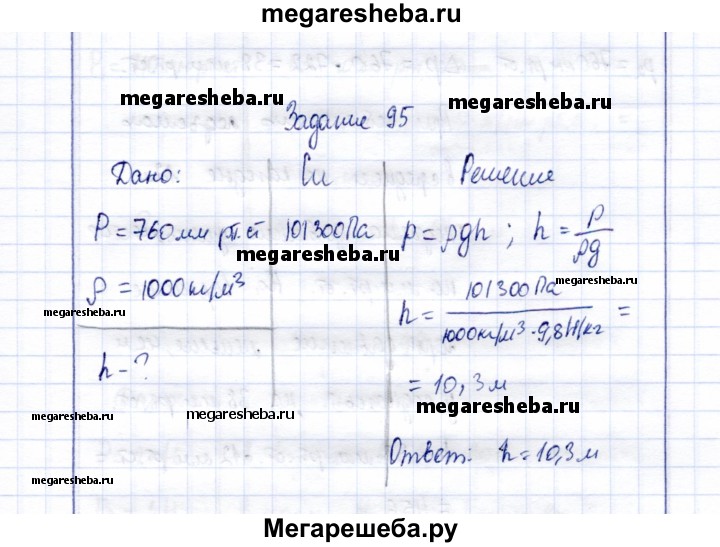 megaresheba.ru
megaresheba.ru megaresheba.ru
Задание 95
Дано: Си Решение
P = 760 мм рт. ст 101300 Па p = ρgh ; h = p/ρg
megaresheba.ru
megaresheba.ru
ρ = 1000 кг/м³
megaresheba.ru
h = 101300 Па / 1000 кг/м³ · 9,8 Н/кг =
h - ?
= 10,3 м
megaresheba.ru megaresheba.ru megaresheba.ru
Ответ: h = 10,3 м
megaresheba.ru megaresheba.ru
Мегарешеба.ру